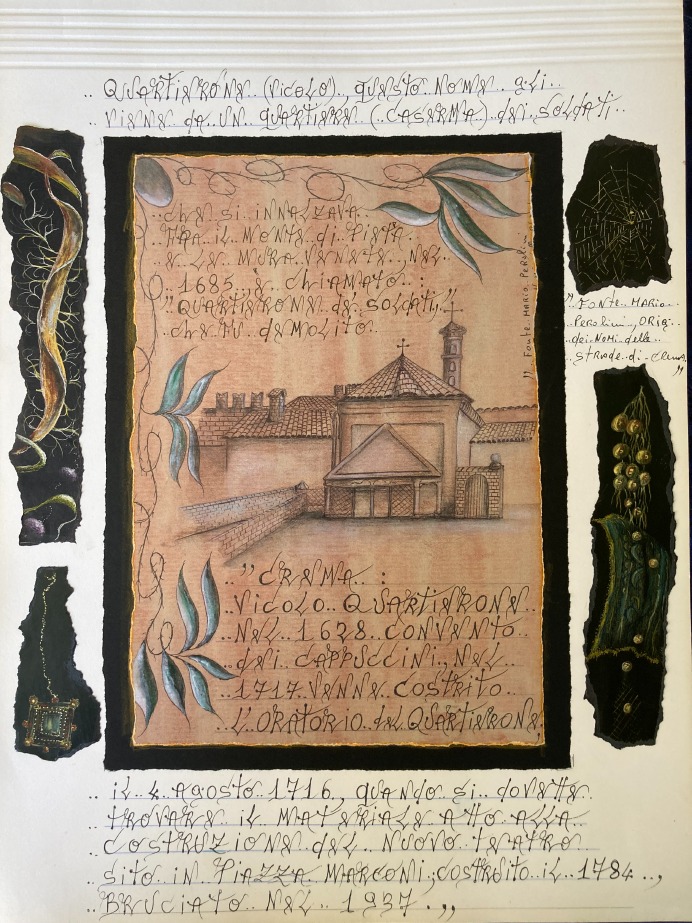 .. QUARTIERONE (VICOLO)., QUESTO NOME GLI..
.. VIENE DA UN QUARTIERE (.CASERMA.) DEI SOLDATI..
..CHE SI INNALZAVA..
..TRA IL MONTE di PIETÀ..
.. E LE MURA VENETE., NEL..
.. 1685., È CHIAMATO..:
.."QUARTIERONE de SOLDATI,,"
..CHE FU dEMOLITO..
,, Fonte MARIO PEROLINI..
" FONTE.. MARIO..
..PEROLINI., ORIGI.
..dei NOMI delle..
..STRADE di..
"
.." CREMA..:
..VICOLO QUARTIERONE..
..NEL..1628..CONVENTO..
..dEI..CAPPUCCINI., NEL..
..1717.VENNE COSTRITO..
..L'ORATORIO del QUARTIERONE,
.. IL 4 AGOSTO 1716, QUANDO SI DOVETTE
.. TROVARE IL MATERIALE ATTO ALLA..
.. COSTRUZIONE dEL NUOVO TEATRO
.. SITO IN PIAZZA MARCONI, COSTRUITO IL..1784..,
.. BRUCIATO NEL 1937.,,